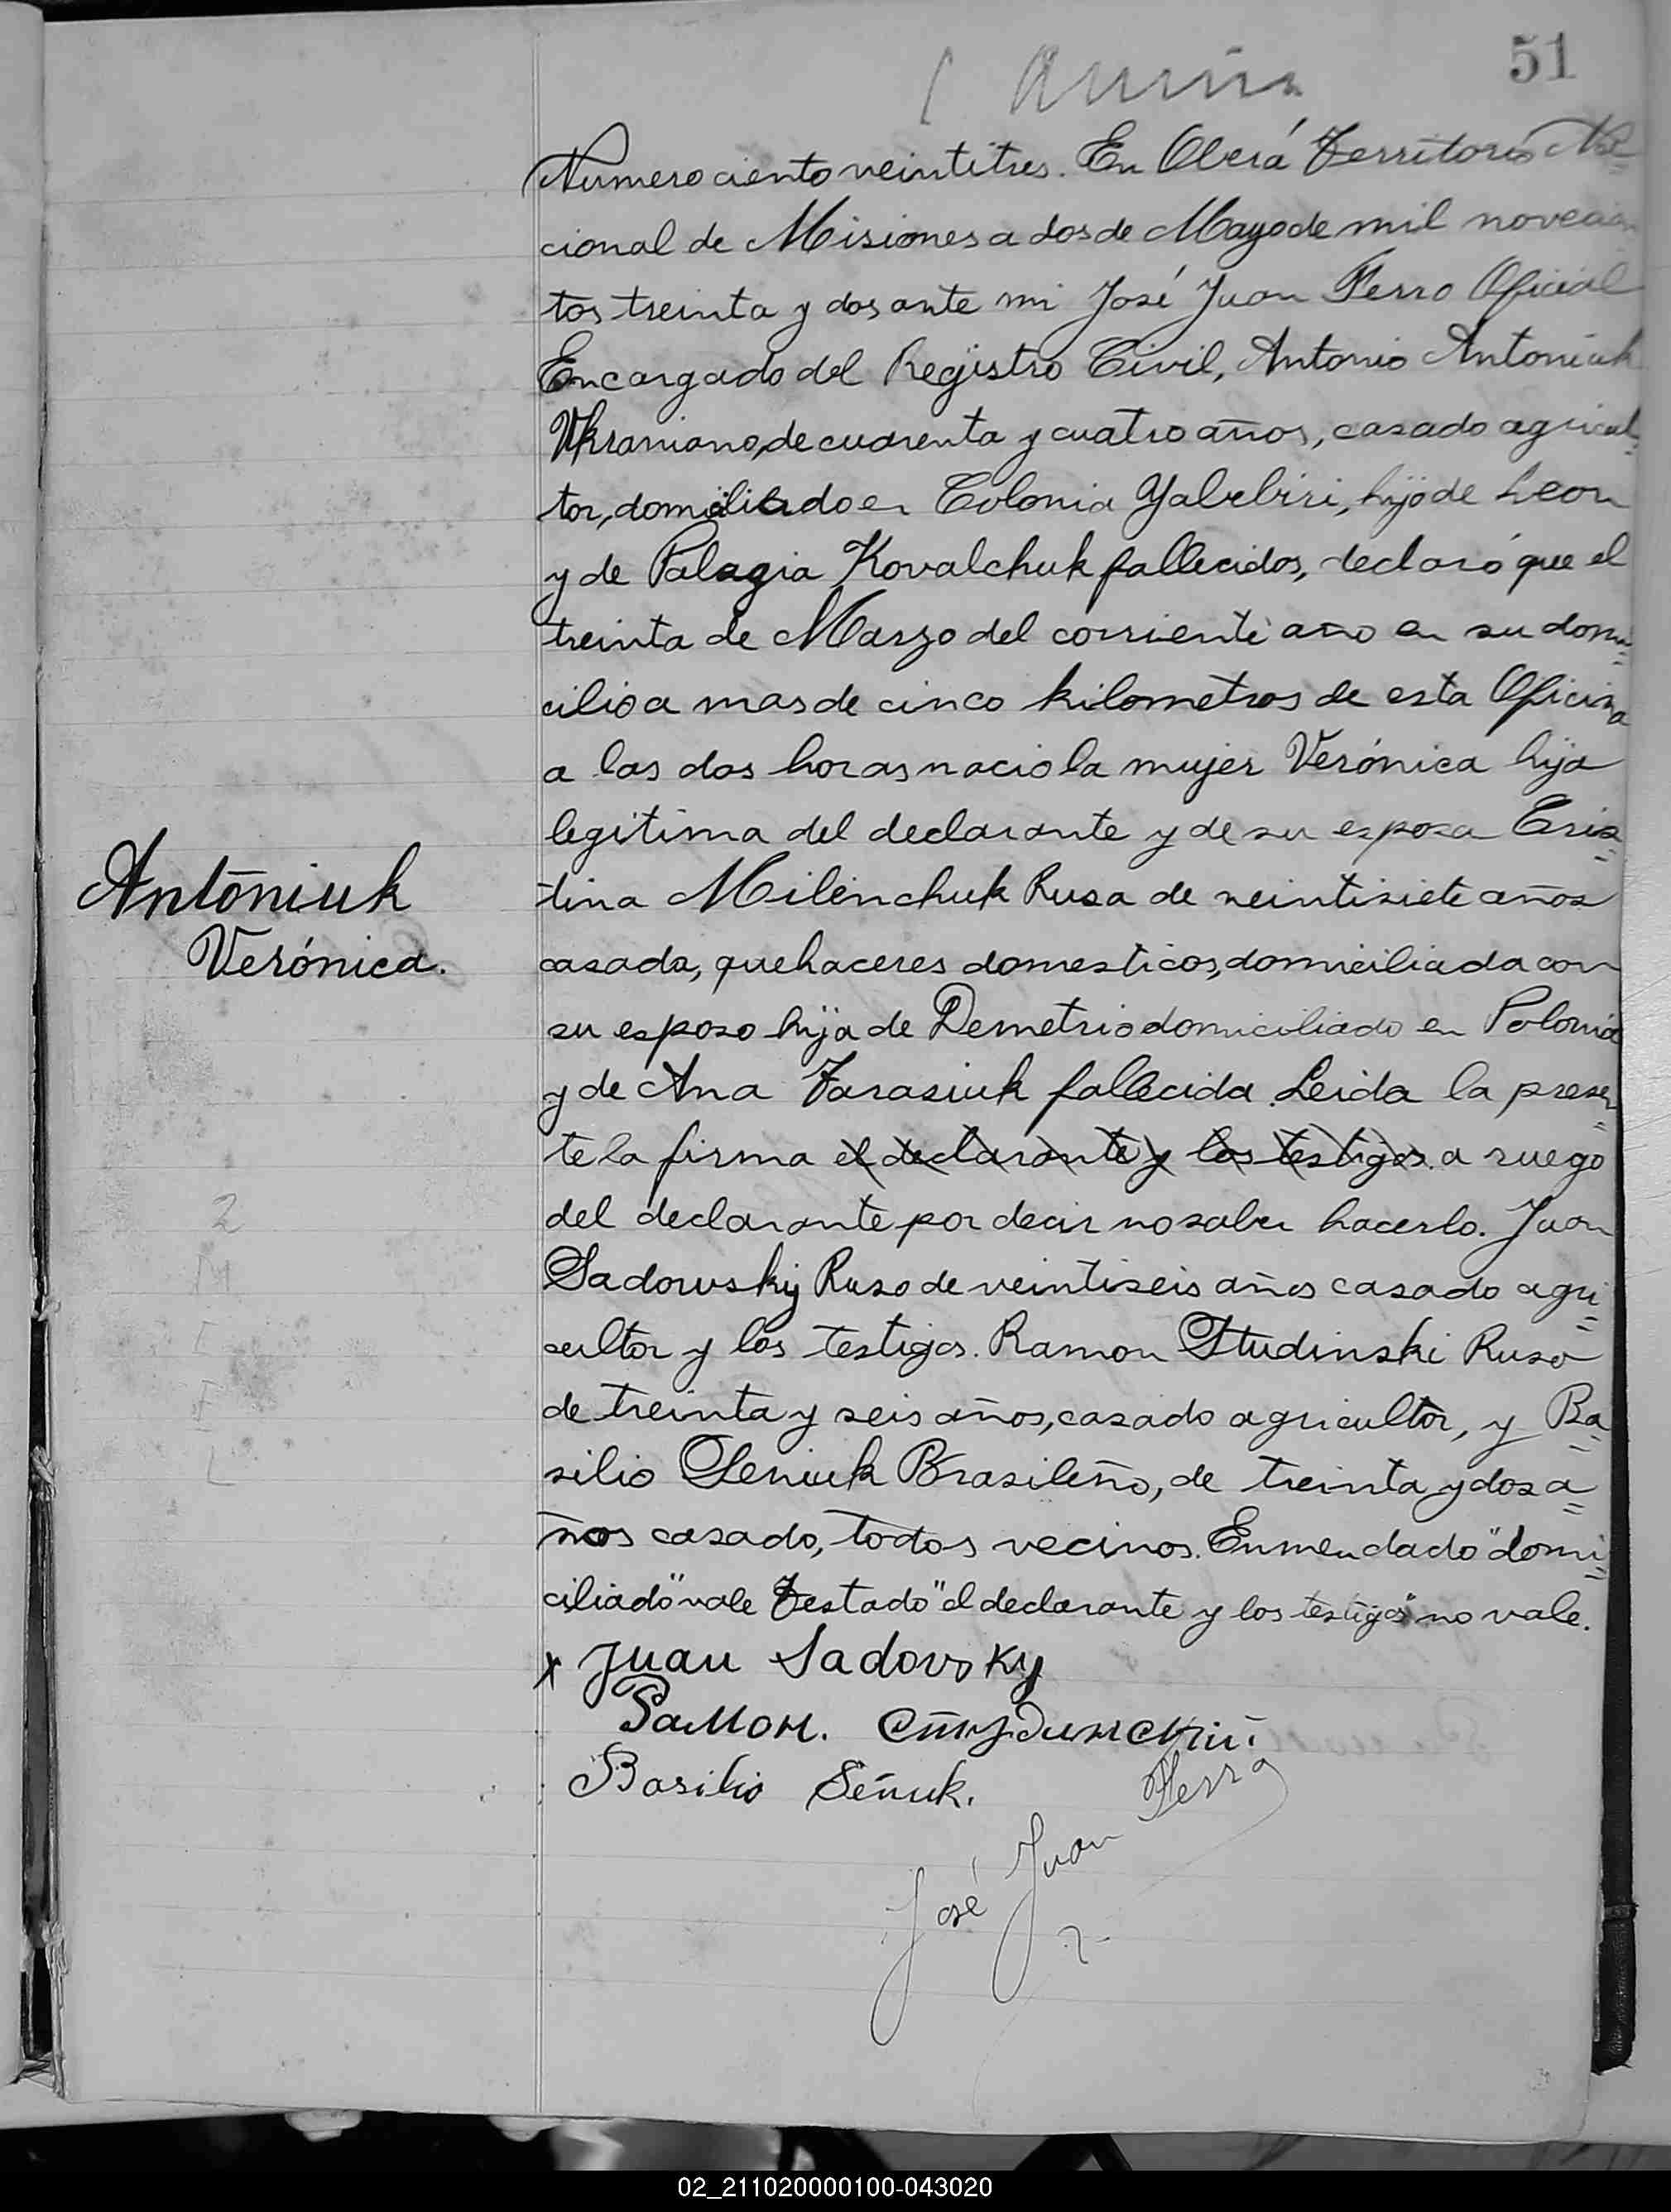 51
Numero ciento veintitres. En Oberá Territorio Na=
cional de Misiones a dos de Mayo de mil novecien
tos treinta y dos ante mi José Juan Ferro Oficial
Encargado del Registro Civil, Antonio Antoniuk
Ukraniano, de cuarenta y cuatro años, casado agricul=
tor, domiciliado en Colonia Yabebiri, hijo de Leon
y de Palagia Kovalchuk fallecidos, declaró que el
treinta de Marzo del corriente año en su domi=
cilio a mas de cinco kilometros de esta Oficina
a las dos horas nacio la mujer Verónica hija
legitima del declarante y de su esposa Cris=
tina Milinchuk Rusa de veintisiete años
Antoniuk
Verónica.
casada, quehaceres domesticos, domiciliada con
su esposo hija de Demetrio domiciliado en Polonia
y de Ana Tarasiuk fallecida. Leida la presen=
te la firma el declarante y los testigos. a ruego
del declarante por decir no saber hacerlo. Juan
Sadowskij Ruso de veintiseis años casado agri=
cultor y los testigos. Ramon Studinski Ruso
de treinta y seis años, casado agricultor, y Ba=
silio Seniuk Brasileño, de treinta y dos a=
ños casado, todos vecinos. Enmendado "domi=
ciliado" vale Testado "el declarante y los testigos" no vale.
2
M
L
x Juan Sadovsky
Рамон. Студинский.
Basilio Señuk.
José Juan Ferro
02_211020000100-043020